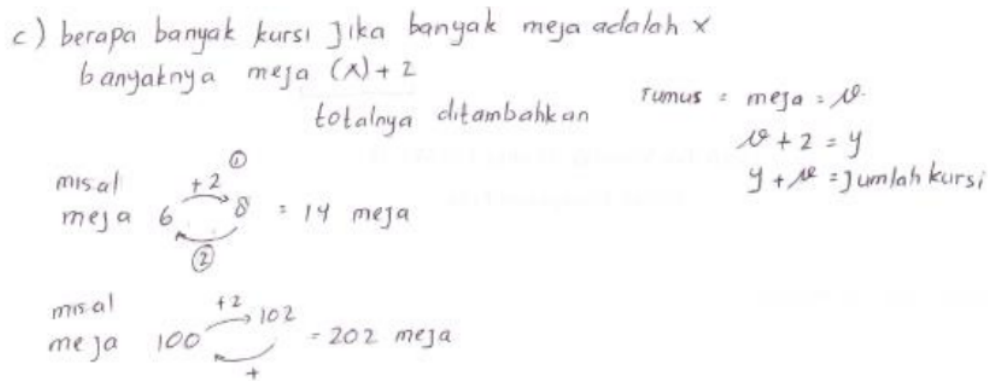 c) berapa banyak kursi Jika banyak meja adalah x
banyaknya meja (x) + 2
totalnya ditambahkan
rumus = meja = x
x + 2 = y
y + x = Jumlah kursi
misal +2 ①
meja 6 8 = 14 meja
②
misal +2
meja 100 102 = 202 meja
+